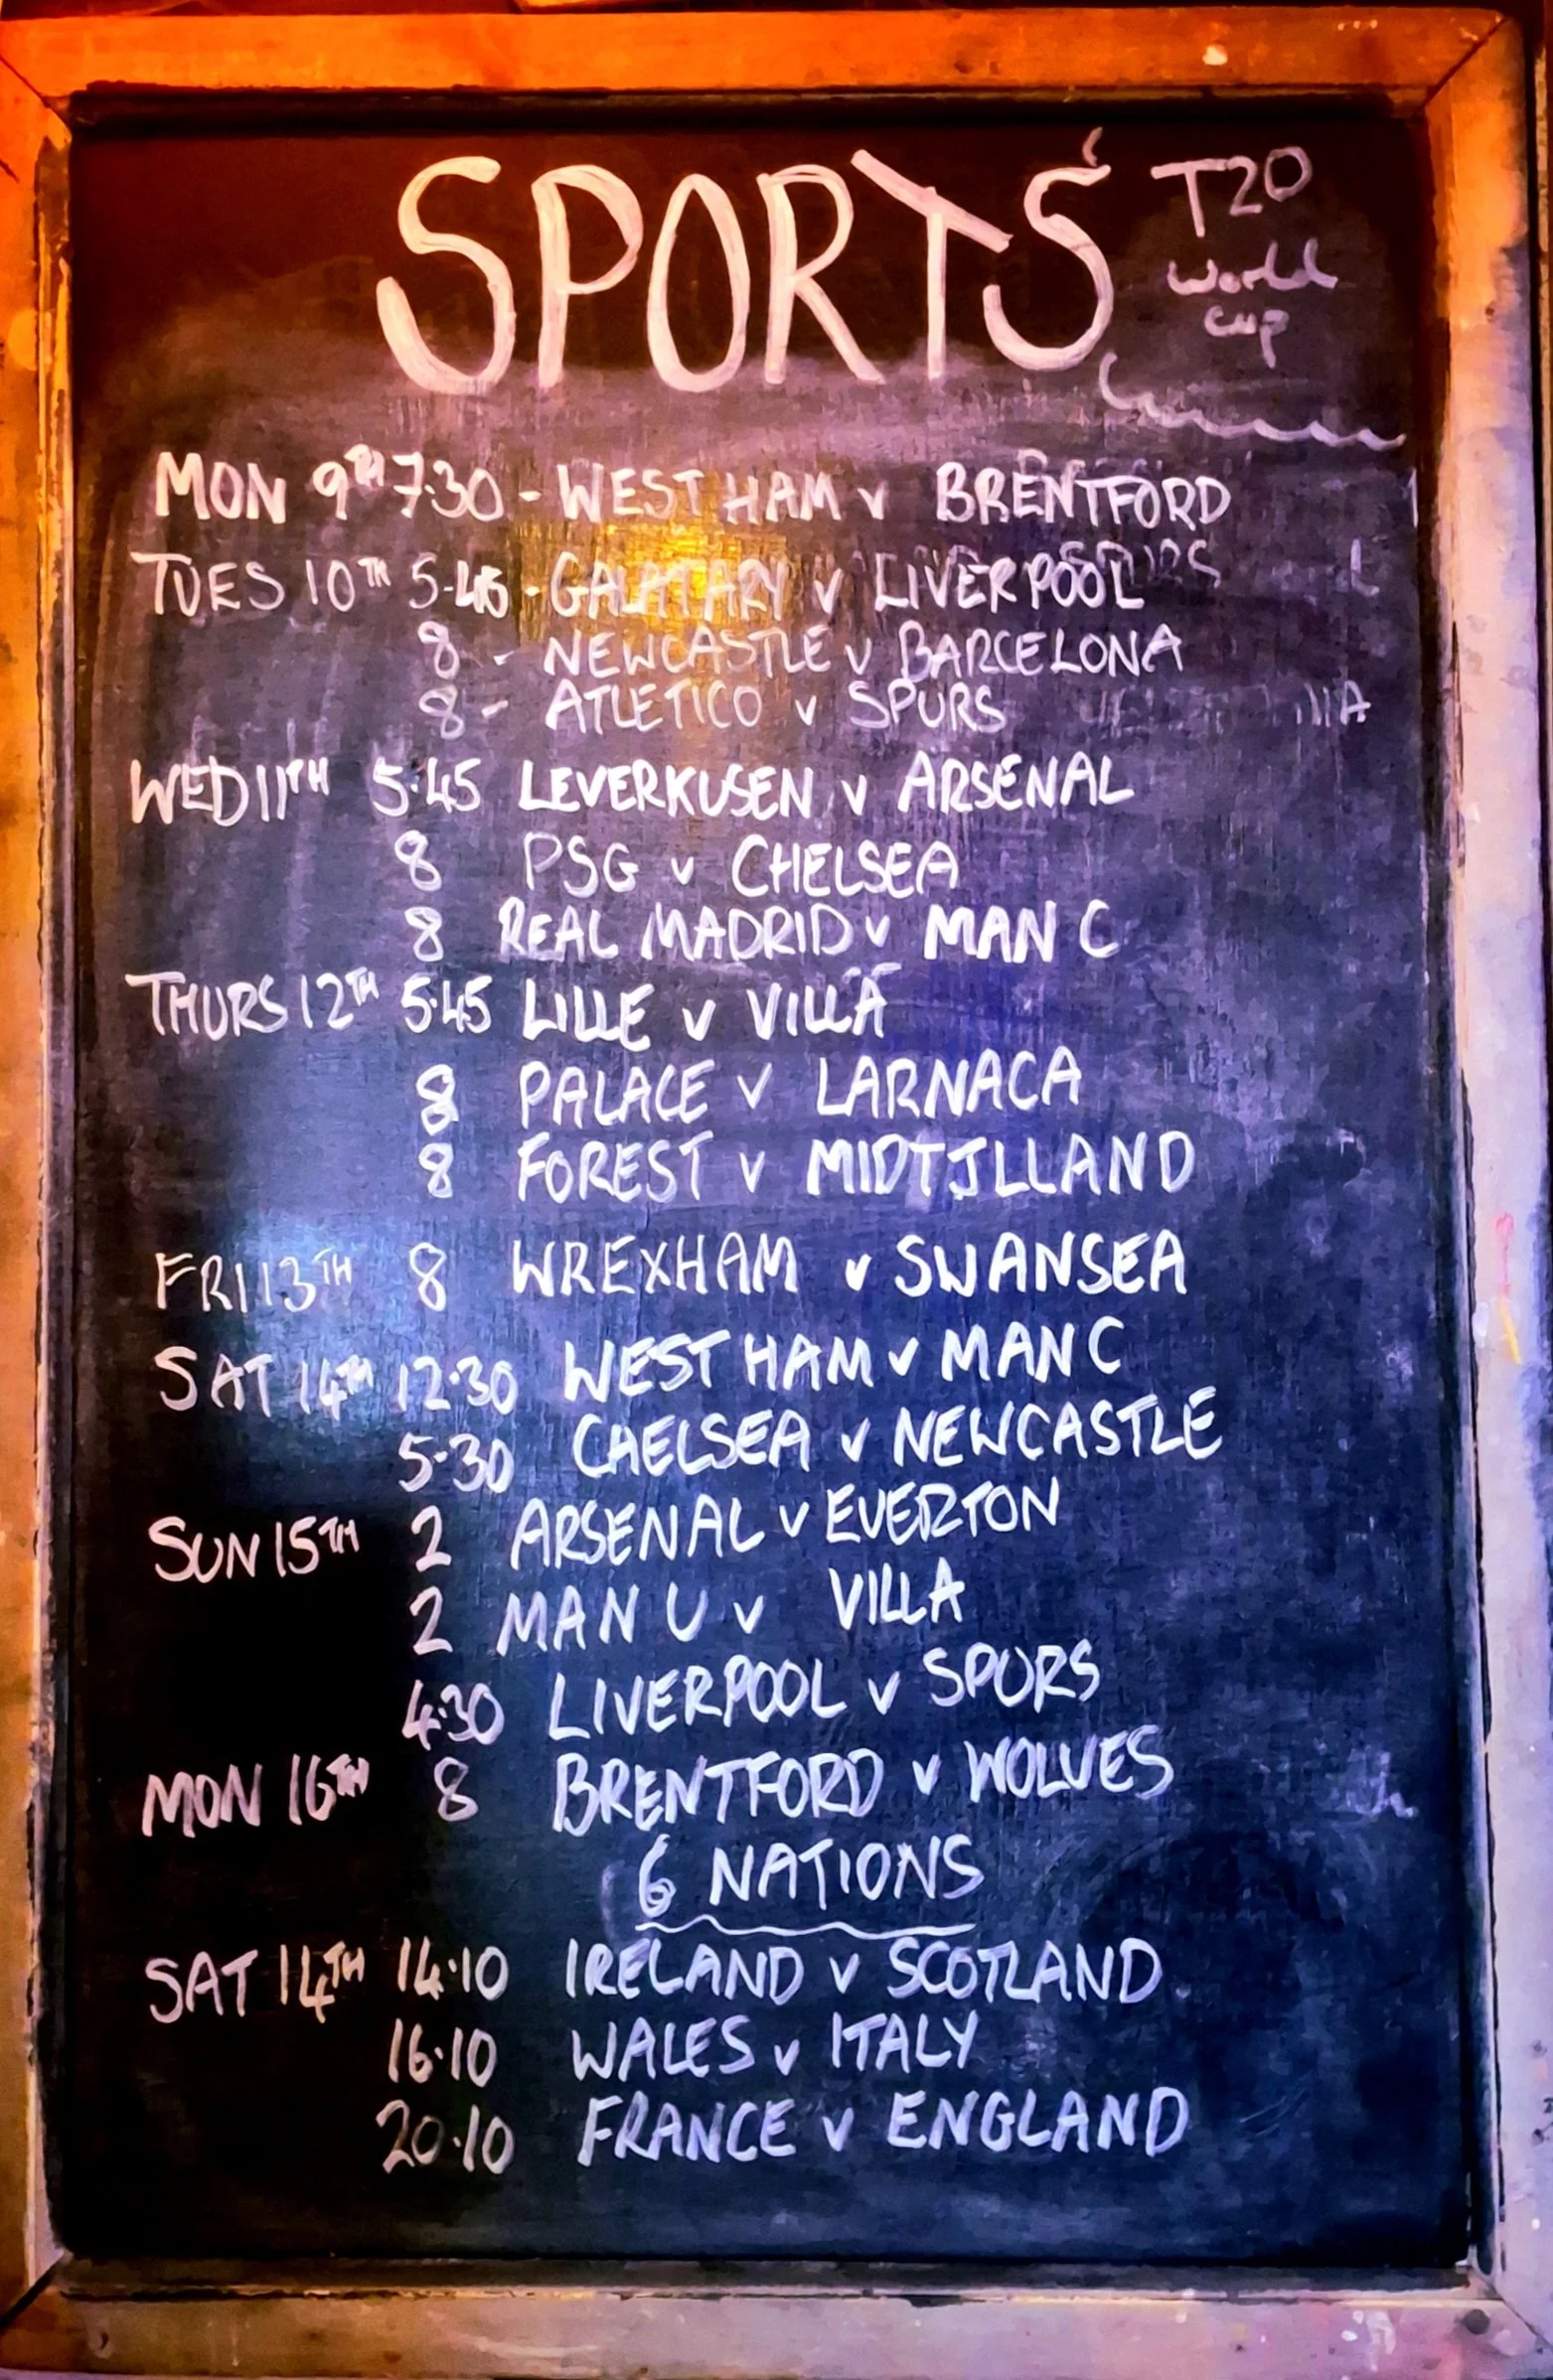 SPORTS
T20
World
Cup
MON 9TH 7.30 - WEST HAM v BRENTFORD
TUES 10TH 5.45 - GALATARY v LIVERPOOL
8 - NEWCASTLE v BARCELONA
8 - ATLETICO v SPURS
WED 11TH 5.45 LEVERKUSEN v ARSENAL
8 PSG v CHELSEA
8 REAL MADRID v MAN C
THURS 12TH 5.45 LILLE v VILLA
8 PALACE v LARNACA
8 FOREST v MIDTJLLAND
FRI 13TH 8 WREXHAM v SWANSEA
SAT 14TH 12.30 WEST HAM v MAN C
5.30 CHELSEA v NEWCASTLE
SUN 15TH 2 ARSENAL v EVERTON
2 MAN U v VILLA
4.30 LIVERPOOL v SPURS
MON 16TH 8 BRENTFORD v WOLVES
6 NATIONS
SAT 14TH 14.10 IRELAND v SCOTLAND
16.10 WALES v ITALY
20.10 FRANCE v ENGLAND